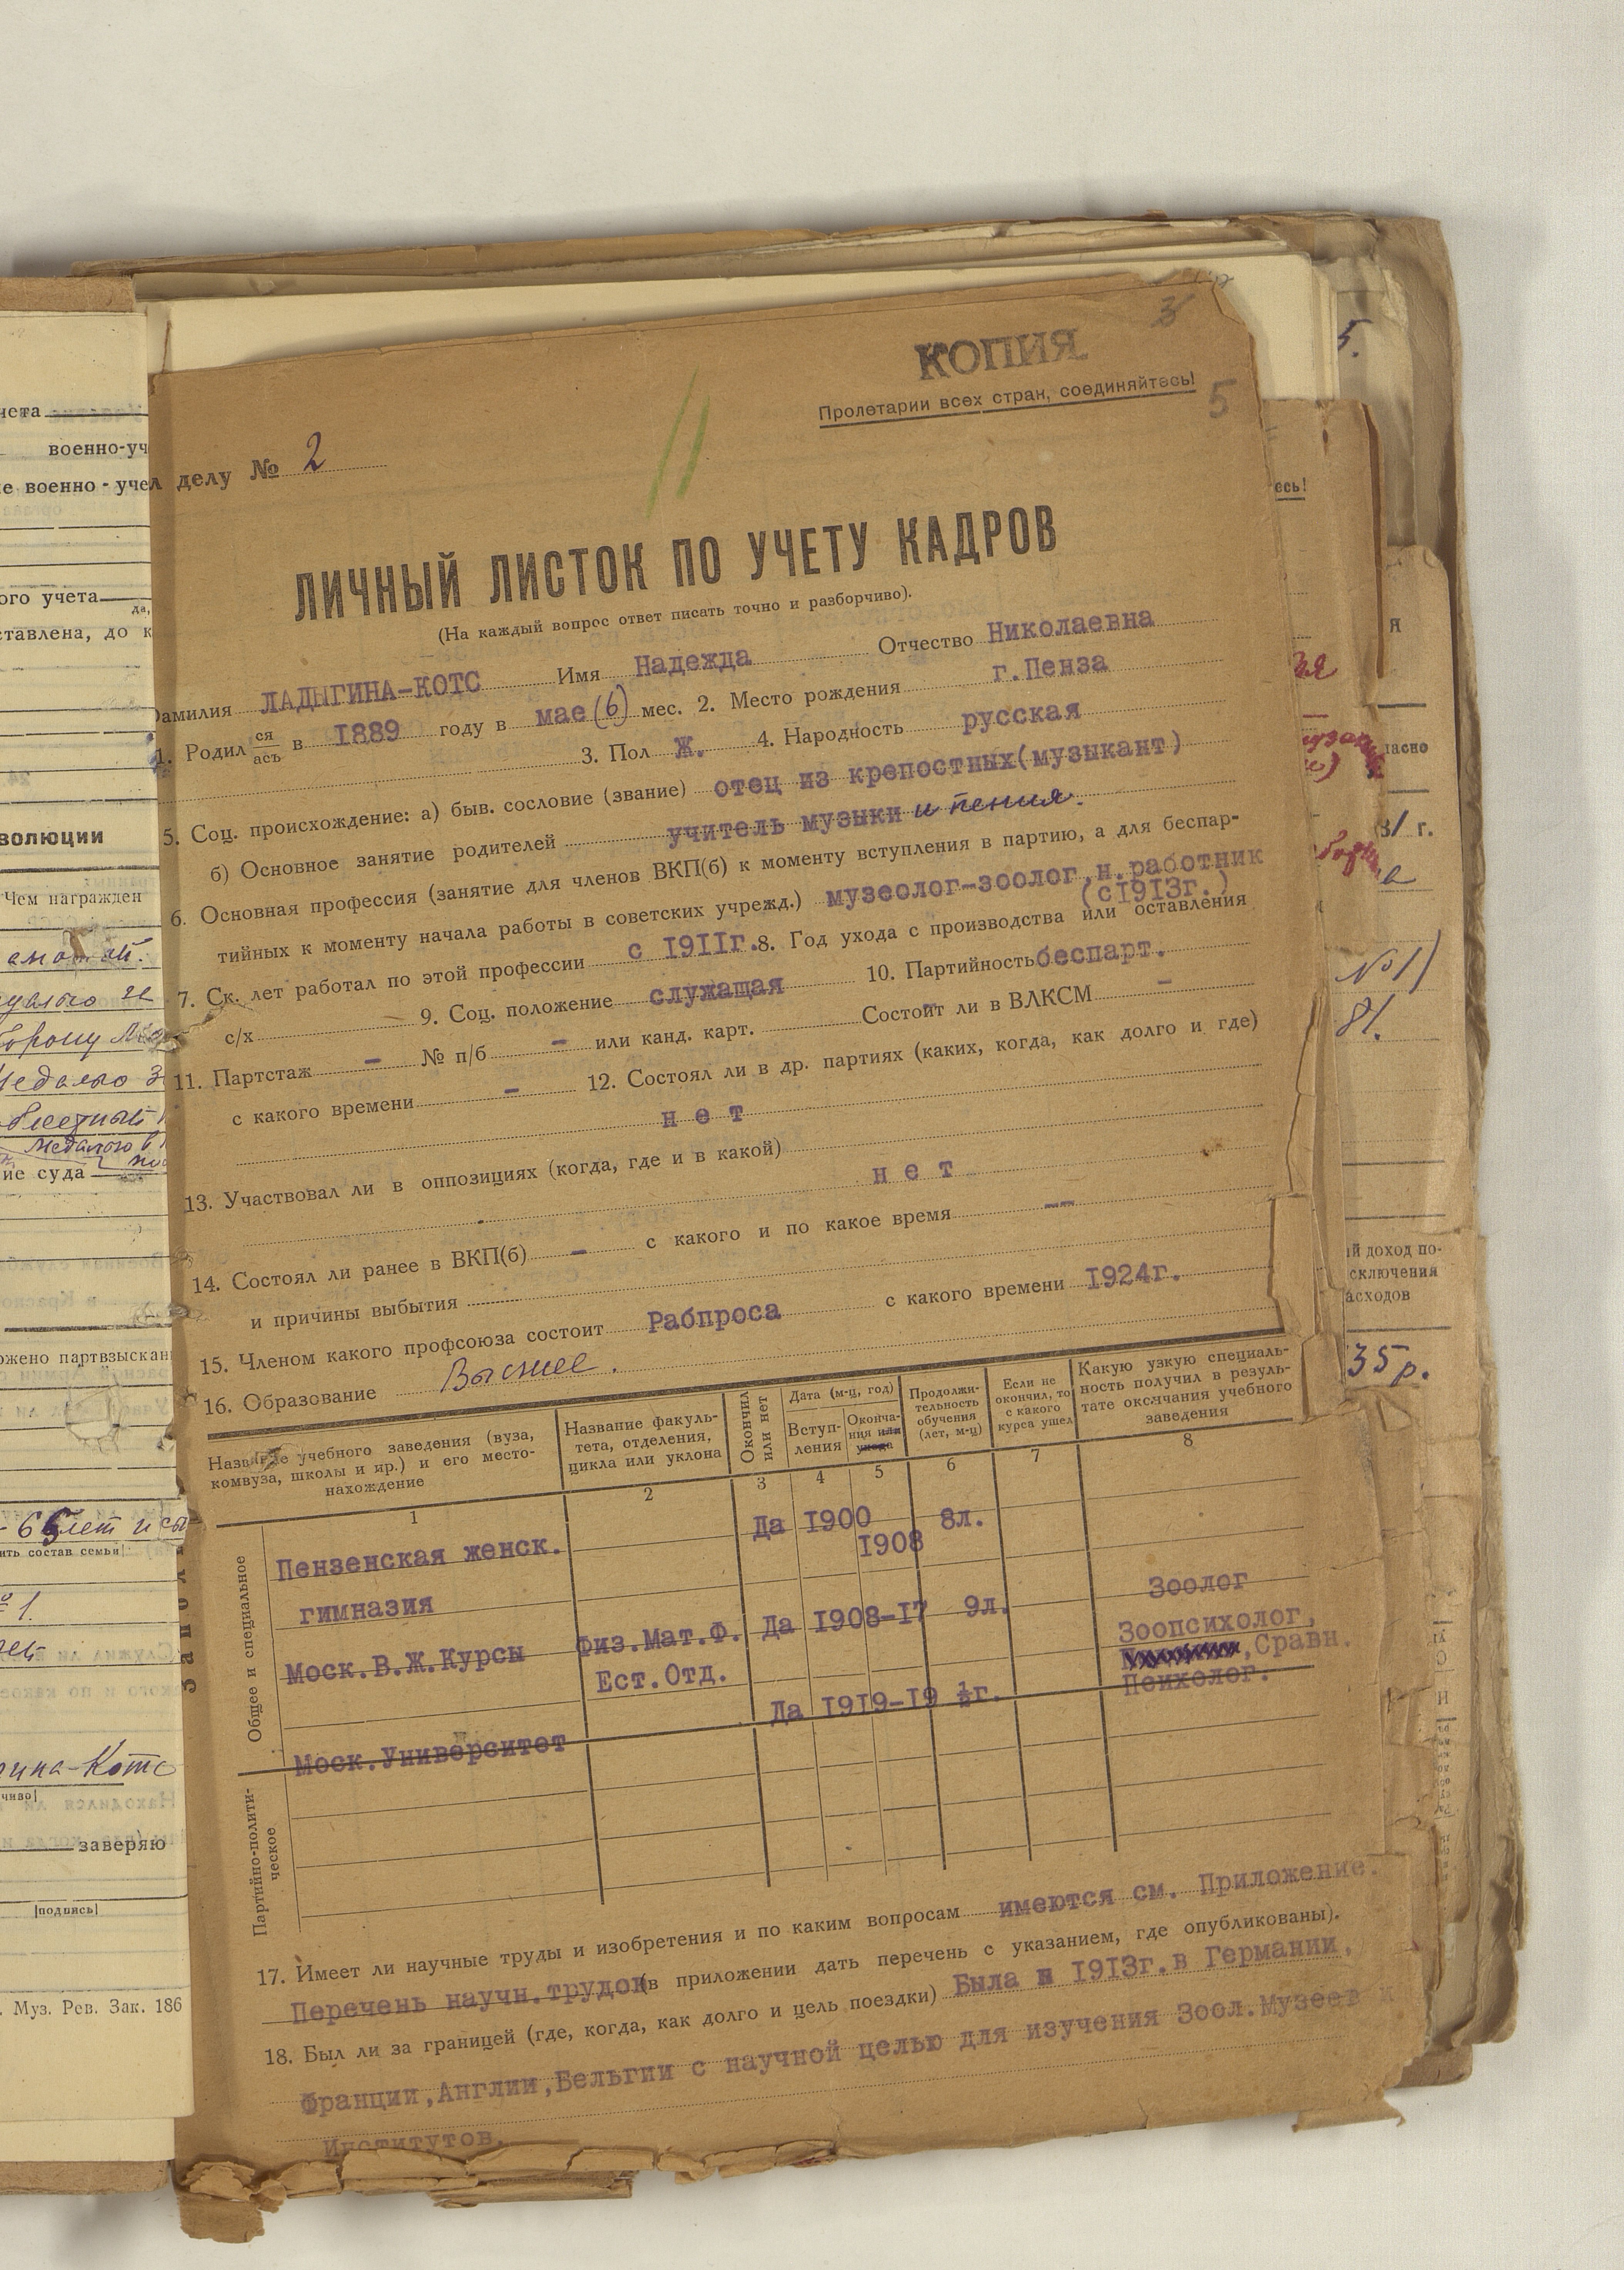 КОПИЯ
3
Пролетарии всех стран, соединяйтесь!
5
делу № 2
ЛИЧНЫЙ ЛИСТОК ПО УЧЕТУ КАДРОВ
(На каждый вопрос ответ писать точно и разборчиво).
Фамилия ЛАДЫГИНА-КОТС Имя Надежда Отчество Николаевна
1. Родил ся ась в 1889 году в мае (6) мес. 2. Место рождения г.Пенза
3. Пол Ж. 4. Народность русская
5. Соц. происхождение: а) быв. сословие (звание) отец из крепостных(музыкант)
б) Основное занятие родителей учитель музыки и пения.
6. Основная профессия (занятие для членов ВКП(б) к моменту вступления в партию, а для беспар-
тийных к моменту начала работы в советских учрежд.) музеолог-зоолог,н.работник
(с1913г.)
7. Ск. лет работал по этой профессии с 1911г. 8. Год ухода с производства или оставления
с/х 9. Соц. положение служащая 10. Партийность беспарт.
11. Партстаж - № п/б - или канд. карт. Состоит ли в ВЛКСМ -
с какого времени - 12. Состоял ли в др. партиях (каких, когда, как долго и где)
нет
13. Участвовал ли в оппозициях (когда, где и в какой)
нет
14. Состоял ли ранее в ВКП(б) - с какого и по какое время —
и причины выбытия
15. Членом какого профсоюза состоит Рабпроса с какого времени 1924г.
16. Образование Высшее.
Название учебного заведения (вуза, комвуза, школы и яр.) и его место- нахождение
Название факуль- тета, отделения, цикла или уклона
Окончил или нет
Дата (м-ц, год)
Вступ- ления
Оконча- ния или ухода
Продолжи- тельность обучения (лет, м-ц)
Если не окончил, то с какого курса ушел
Какую узкую специаль- ность получил в резуль- тате окончания учебного заведения
1 2 3 4 5 6 7 8
Общее и специальное
Пензенская женск. Да 1900 8л.
1908
гимназия
Зоолог
Моск.В.Ж.Курсы Физ.Мат.Ф. Да 1908-17 9л. Зоопсихолог,
Ест.Отд. ,Сравн.
Психолог.
Моск.Университет Да 1919-19 ½г.
Партийно-полити- ческое
17. Имеет ли научные труды и изобретения и по каким вопросам имеются см. Приложение.
Перечень научн.трудов (в приложении дать перечень с указанием, где опубликованы).
18. Был ли за границей (где, когда, как долго и цель поездки) Была в 1913г.в Германии,
Франции,Англии,Бельгии с научной целью для изучения Зоол.Музеев и
Институтов.
чета
военно-уч
е военно-учел
ого учета
да,
ставлена, до к
волюции
Чем награжден
ие суда
ожено партвзыскан
ить состав семьи
№ 1.
гина-Котс
чиво
заверяю
подпись
. Муз. Рев. Зак. 186
5.
есь!
я
ласно
31 г.
№1)
81.
й доход по-
сключения
асходов
35 р.